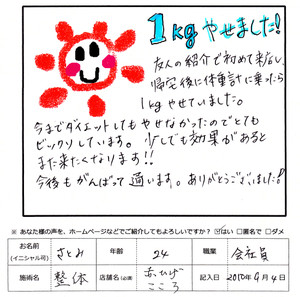 1kgやせました!
友人の紹介で初めて来店し、
帰宅後に体重計に乗ったら
1kgやせていました。
今までダイエットしてもやせなかったのでとても
ビックリしています。少しでも効果があると
また来たくなります!!
今後もがんばって通います。ありがとうございました!
※あなた様の声を、ホームページなどでご紹介してもよろしいですか? ☑はい □匿名で □ダメ
お名前 (イニシャル可) さとみ 年齢 24 職業 会社員
施術名 整体 店舗名 赤ひげこころ 記入日 2010年9月4日